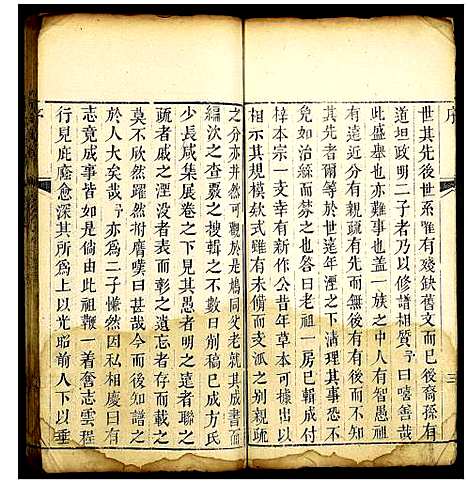 序
世其先後世系雖有殘缺舊文而已後裔孫有
道坦政明二子者乃以修譜相贊予曰嘻善哉
此盛舉也亦難事也蓋一族之中人有智愚祖
有遠近分有親疏有無後有有後而不知
其先者而欲於世遠年湮之下清理其事恐不
免如治絲而棼之也答曰老祖一房已斟付
梓本宗一支幸有新作公昔年草本可據出以
相示其規模欵式雖有未備而支派之別親疏
之分亦井然可觀於是鳩同父老就其成書而
編次之查覈之搜輯之不數日剞稿已成方氏
少長咸集展卷之下見其愚者明之遠者聯之
疏者親之湮沒者表而彰之遺忘者存而載之
莫不欣然躍然拊膺嘆曰甚哉今而後知譜之
於人大矣哉予亦為二子慊然因私相慶曰有
志竟成事皆如是倘由此祖鞭一着奮志雲程
行見庇廕愈深其所為上以光昭前人下以垂